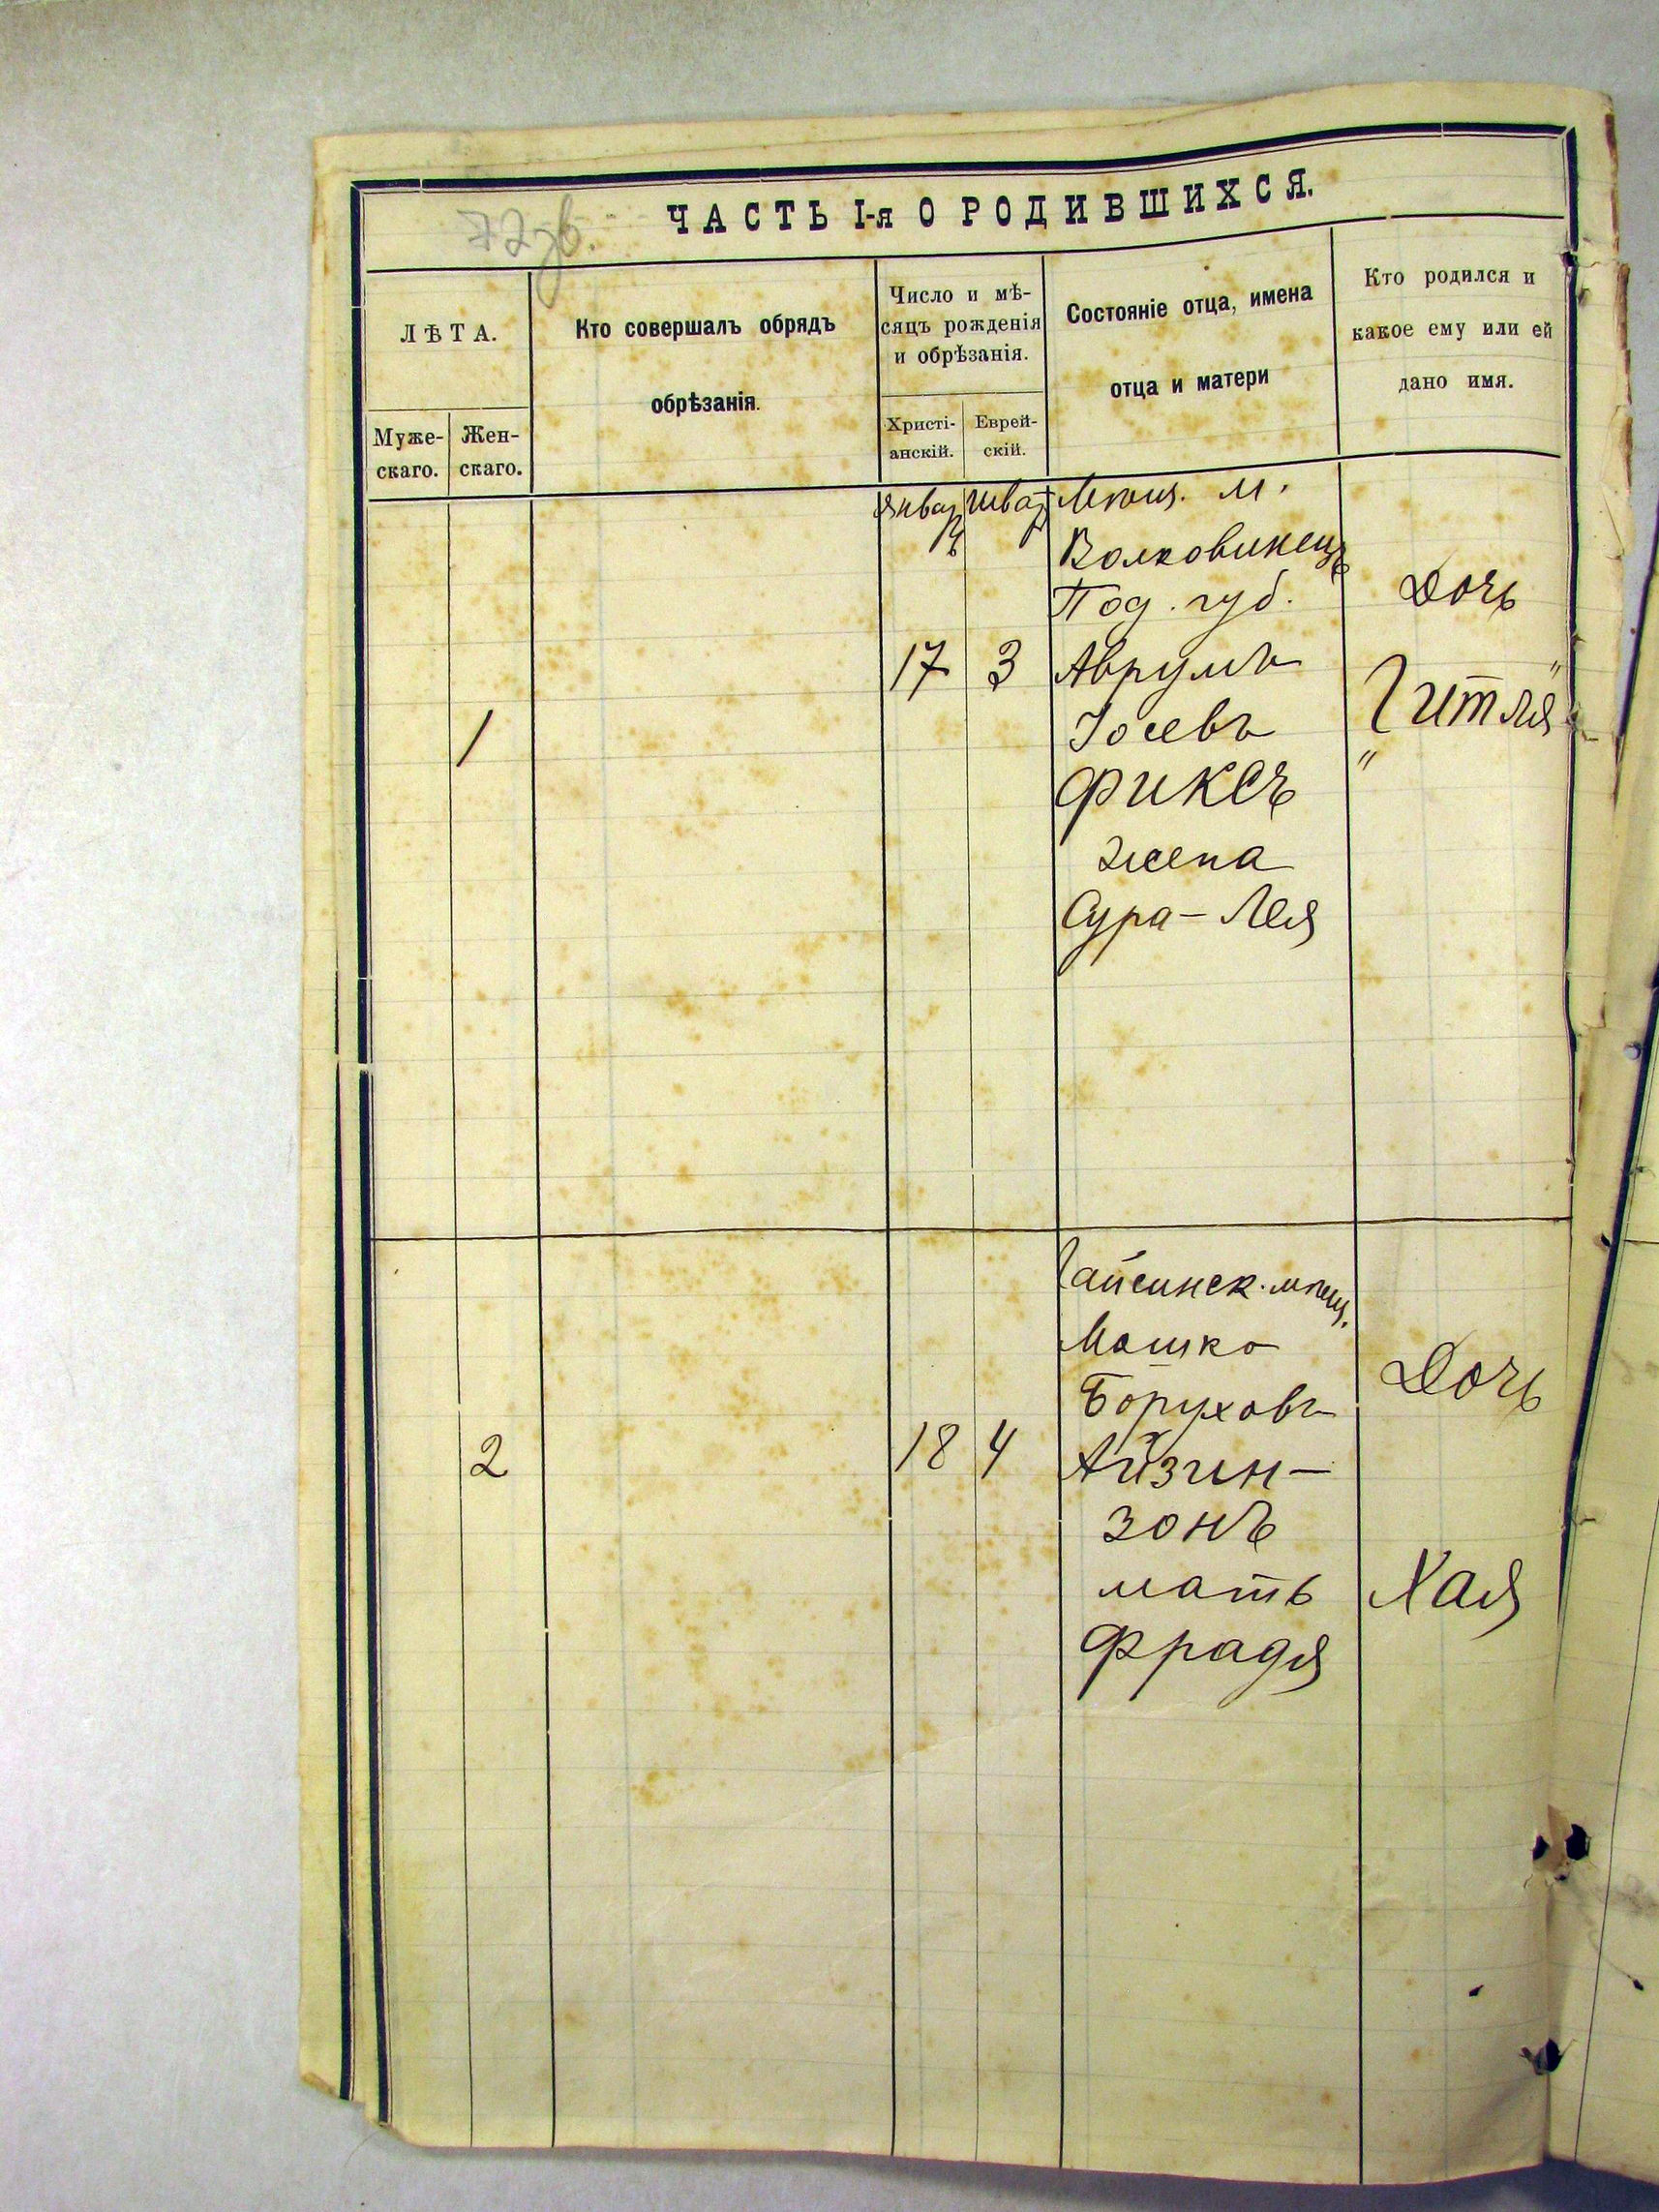 72 зв.
ЧАСТЬ I-я О РОДИВШИХСЯ.
ЛѢТА.
Муже-
скаго.
Жен-
скаго.
Кто совершалъ обрядъ
обрѣзанія.
Число и мѣ-
сяцъ рожденія
и обрѣзанія.
Христі-
анскій.
Еврей-
скій.
Состояніе отца, имена
отца и матери
Кто родился и
какое ему или ей
дано имя.
1
Январь
17
Шват
3
Мѣщ. м.
Волковинецъ
Под. губ.
Аврумъ
Іосевъ
Фиксъ
жена
Сура-Лея
Дочь
"Гитля"
2
18
4
Гайсинск. мѣщ.
Мошко
Боруховъ
Айзин-
зонъ
мать
Фрадя
Дочь
Хая